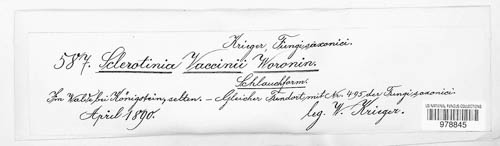 Krieger, Fungi saxonici.
587. Sclerotinia Vaccinii Woronin.
Schlauchform.
Im Walde bei Königstein, selten. — Gleicher Fundort, mit Nr. 495 der Fungi saxonici
April 1890. leg. W. Krieger.
US NATIONAL FUNGUS COLLECTIONS
978845